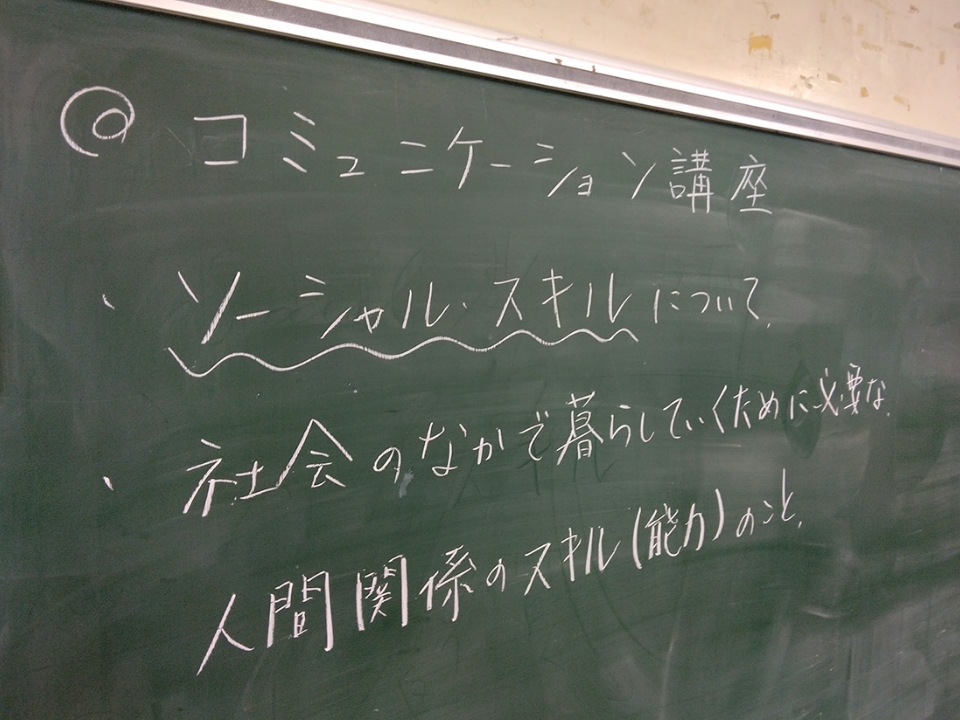 ◎ コミュニケーション講座
・ソーシャル・スキルについて.
・社会のなかで暮らしていくために必要な.
人間関係のスキル(能力)のこと.